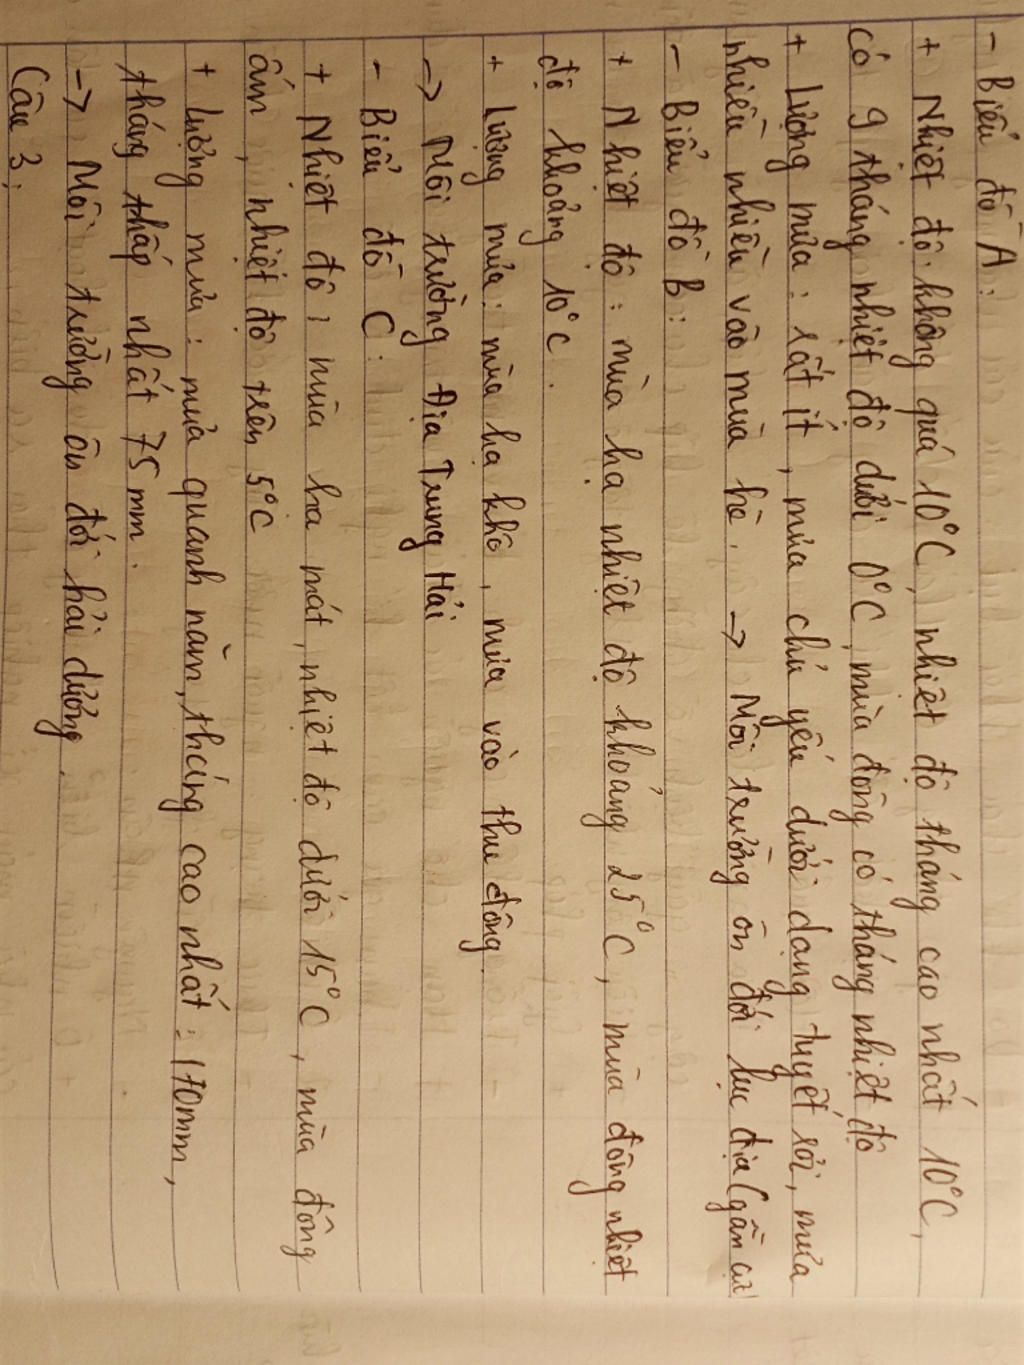 - Biểu đồ A:
+ Nhiệt độ: không quá 10°C, nhiệt độ tháng cao nhất 10°C,
có 9 tháng nhiệt độ dưới 0°C, mùa đông có tháng nhiệt độ
+ Lượng mưa: rất ít, mưa chủ yếu dưới dạng tuyết rơi, mưa
nhiều nhiều vào mùa hè. → Môi trường ôn đới lục địa (gần cực
- Biểu đồ B:
+ Nhiệt độ: mùa hạ nhiệt độ khoảng 25°C, mùa đông nhiệt
độ khoảng 10°C.
+ Lượng mưa: mùa hạ khô, mưa vào thu đông.
→ Môi trường Địa Trung Hải
- Biểu đồ C:
+ Nhiệt độ: mùa hạ mát, nhiệt độ dưới 15°C, mùa đông
ấm, nhiệt độ trên 5°C
+ Lượng mưa: mưa quanh năm, tháng cao nhất: 170mm,
tháng thấp nhất 75mm.
→ Môi trường ôn đới hải dương.
Câu 3: